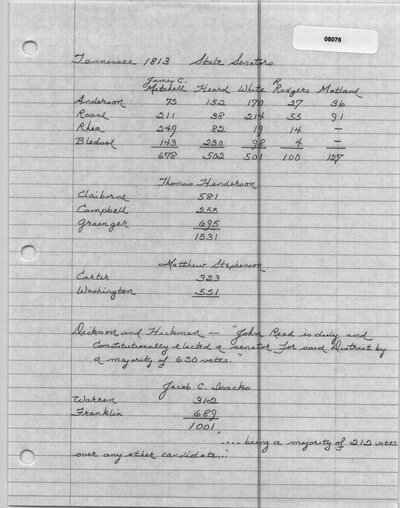 08076
Tennessee 1813 State Senators
James C. Mitchell Heard White R Rodgers Motland
Anderson 75 152 170 27 36
Roane 211 38 214 55 91
Rhea 249 82 19 14 —
Bledsoe 143 230 98 4 —
678 502 501 100 127
Thomas Henderson
Claiborne 581
Campbell 255
Grainger 695
1531
Matthew Stephenson
Carter 323
Washington 551
Dickson and Hickman — "John Read is duly and
Constitutionally elected a senator for said District by
a majority of 650 votes."
Jacob C. Isacks
Warren 312
Franklin 689
1001
"....being a majority of 212 votes
over any other candidate..."